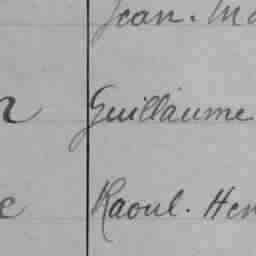 Jean. Ma
Guillaume
Raoul. Hen